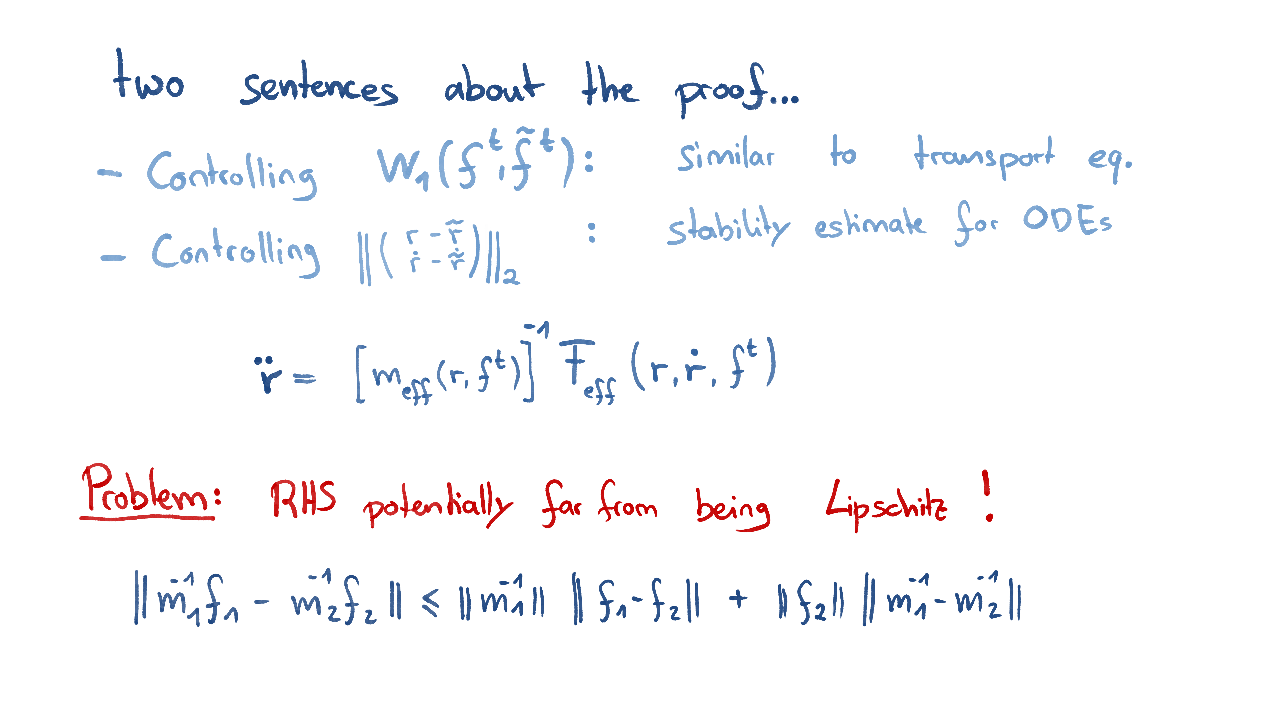 two sentences about the proof...
- Controlling W₁(fᵗ, f̃ᵗ): similar to transport eq.
- Controlling ‖(r - r̃ ṙ - ṙ̃)‖₂ : stability estimate for ODEs
r̈ = [m_eff(r, fᵗ)]⁻¹ F_eff (r, ṙ, fᵗ)
Problem: RHS potentially far from being Lipschitz !
‖m₁⁻¹f₁ - m₂⁻¹f₂‖ ≤ ‖m₁⁻¹‖ ‖f₁-f₂‖ + ‖f₂‖ ‖m₁⁻¹-m₂⁻¹‖